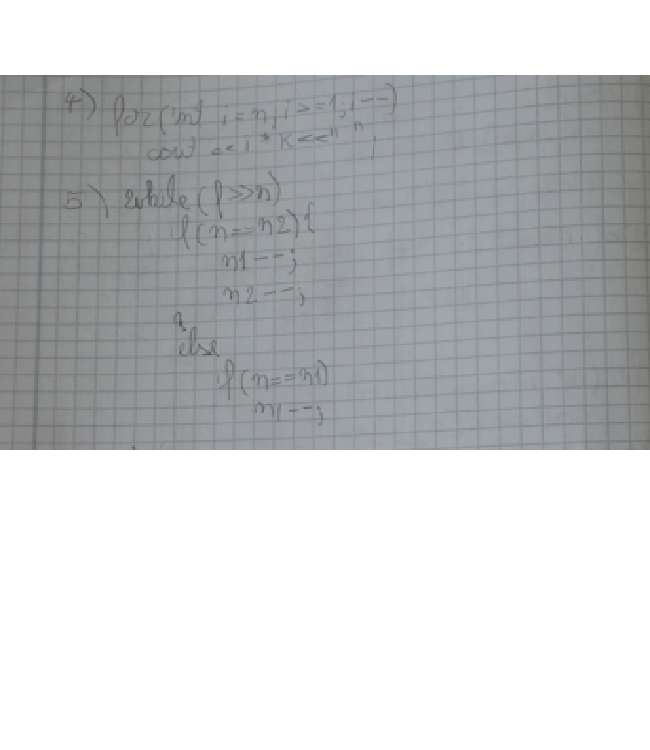 4) for(int i=n;i>=1;i--)
cout <<i*k<<" ";
5) while(f>>n)
if(n==n2){
n1--;
n2--;
}
else
if(n==n1)
n1--;